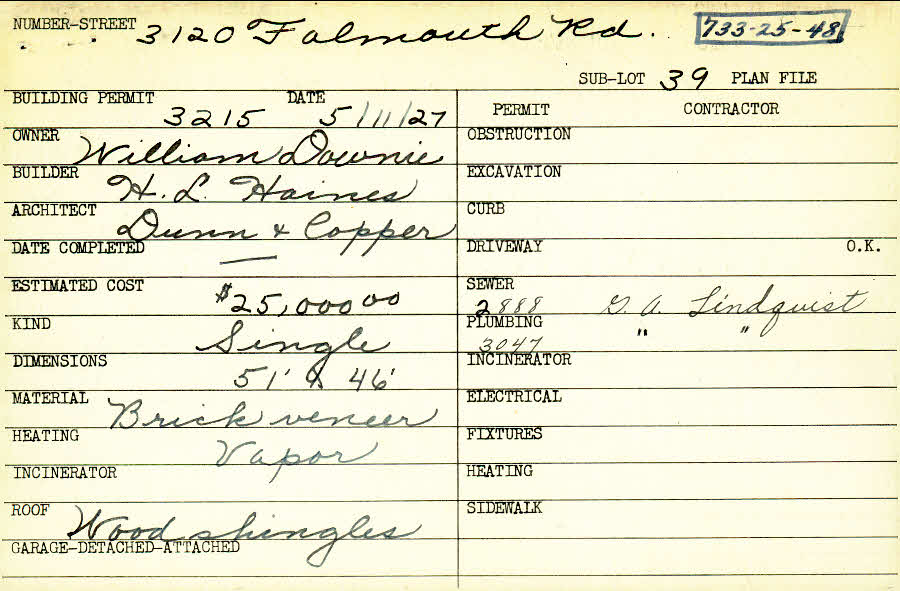 NUMBER-STREET 3120 Falmouth Rd. 733-25-48
SUB-LOT 39 PLAN FILE
BUILDING PERMIT 3215 DATE 5/11/27
OWNER William Downie
BUILDER H. L. Haines
ARCHITECT Dunn & Copper
DATE COMPLETED —
ESTIMATED COST $25,000 00
KIND Single
DIMENSIONS 51' & 46'
MATERIAL Brick veneer
HEATING Vapor
INCINERATOR
ROOF Wood shingles
GARAGE-DETACHED-ATTACHED
PERMIT CONTRACTOR
OBSTRUCTION
EXCAVATION
CURB
DRIVEWAY O.K.
SEWER 2888 G. A. Lindquist
PLUMBING 3047 " "
INCINERATOR
ELECTRICAL
FIXTURES
HEATING
SIDEWALK